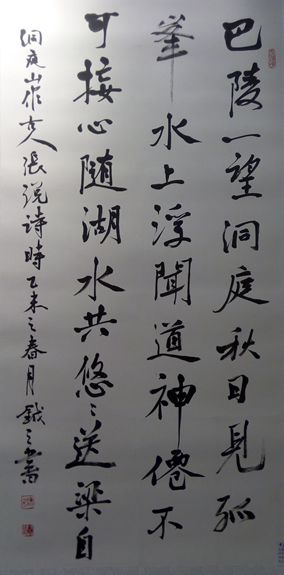 巴陵一望洞庭秋日見孤
峯水上浮聞道神僊不
可接心随湖水共悠〻送梁自
洞庭山作古人張說詩時乙未之春月鉞之書